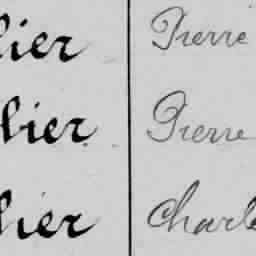 lier Pierre
lier Pierre
lier Charl